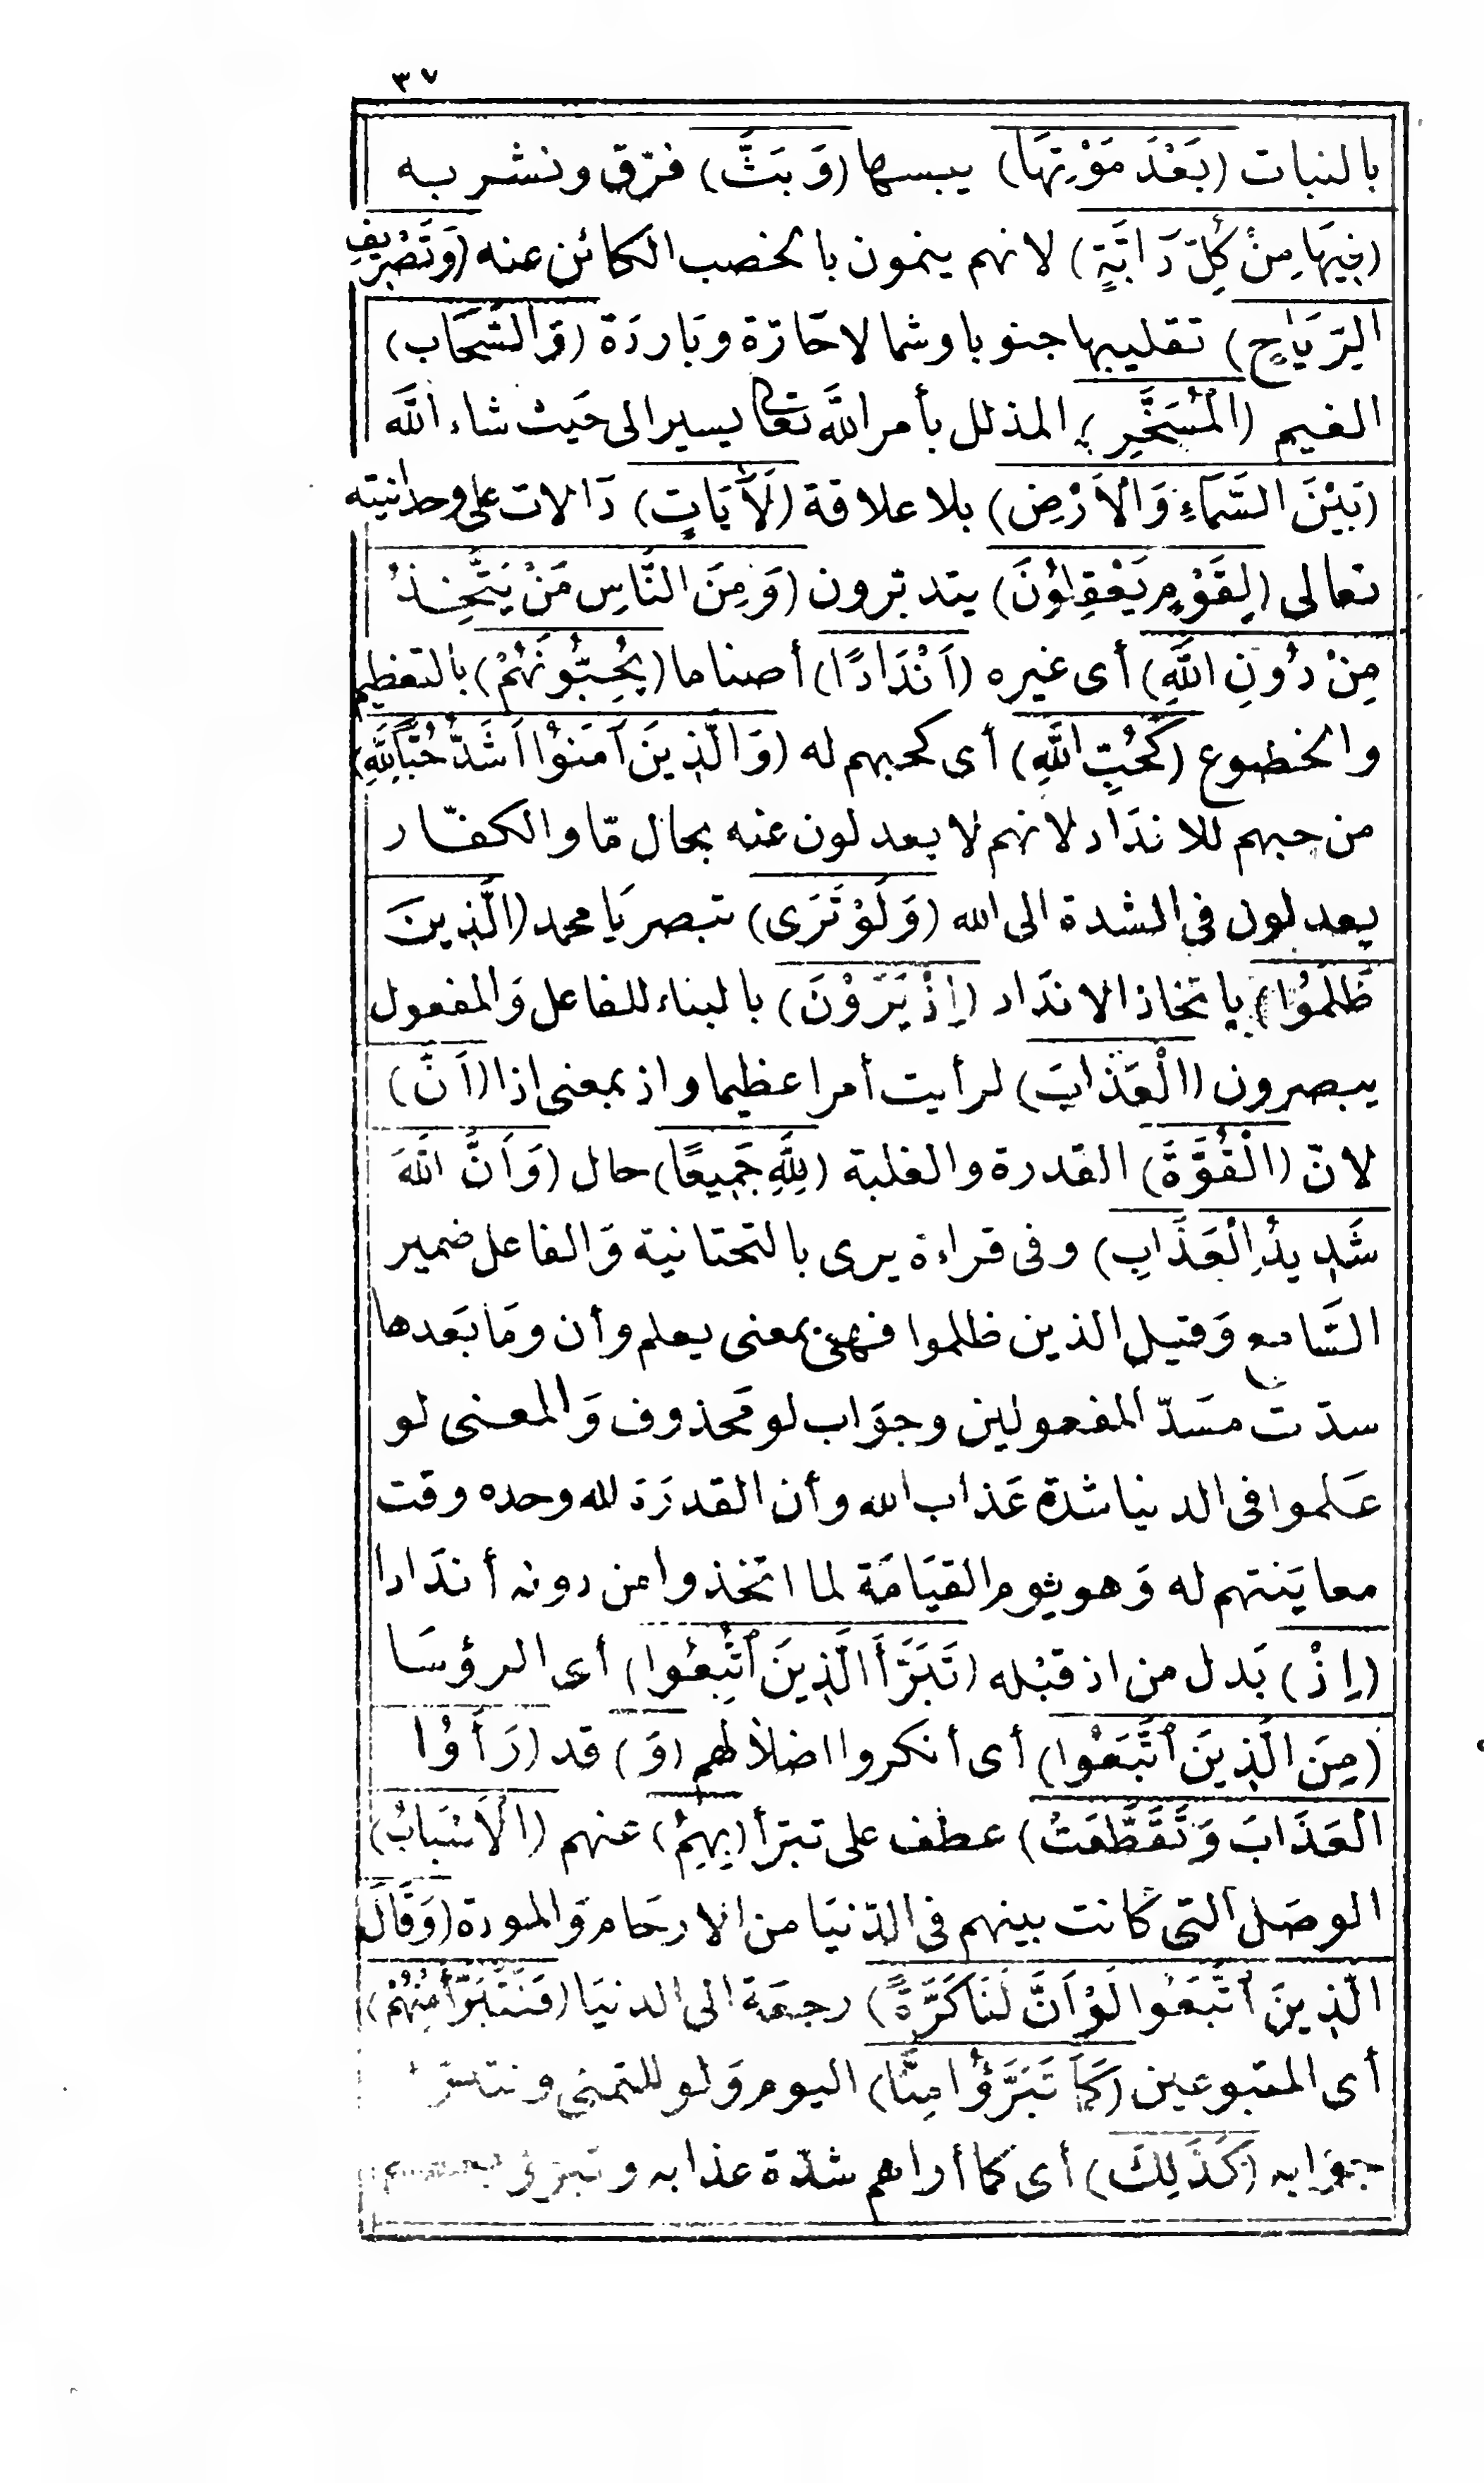 ٣٧
بالنبات (بَعْدَ مَوْتِهَا) يبسها (وَبَثَّ) فرّق ونشر به
(فِيهَا مِنْ كُلِّ دَابَّةٍ) لانهم ينمون بالخصب الكائن عنه (وَتَصْرِيفِ
الرِّيَاحِ) تقليبها جنوبا وشمالا حَارّة وبَاردَة (وَالسَّحَاب)
الغيم (الْمُسَخَّرِ) المذلل بأمر اللَّه تعَالى يسير الى حَيث شاء اللَّه
(بَيْنَ السَّمَاءِ وَالْاَرْضِ) بلا علاقة (لَآيَاتٍ) دَالات على وحدانيته
تعالى (لِقَوْمٍ يَعْقِلُونَ) يتدبّرون (وَمِنَ النَّاسِ مَنْ يَتَّخِذُ
مِنْ دُونِ اللَّهِ) أى غيره (اَنْدَادًا) أصناما (يُحِبُّونَهُمْ) بالتعظيم
والخضوع (كَحُبِّ اللَّهِ) أى كحبهم له (وَالَّذِينَ آمَنُوْا اَشَدُّ حُبًّا لِلَّهِ)
من حبهم للاندَاد لانهم لا يعدلون عنه بحال مّا والكفّار
يعدلون فى الشدة الى الله (وَلَوْ تَرَى) تبصر يَا محمد (الَّذِينَ
ظَلَمُوْا) باتخاذ الاندَاد (اِذْ يَرَوْنَ) بالبناء للفاعل وَالمفعول
يبصرون (الْعَذَابَ) لرأيت أمرا عظيما واذ بمعنى اذا (اَنَّ)
لانّ (الْقُوَّةَ) القدرة والغلبة (لِلَّهِ جَمِيعًا) حال (وَاَنَّ اللهَ
شَدِيدُ الْعَذَابِ) وفى قراءة يرى بالتحتانية وَالفاعل ضمير
السَّامع وَقيل الذين ظلموا فهى بمعنى يعلم وأن ومَا بَعدها
سدّت مسَدّ المفعولين وجوَاب لو مَحذوف وَالمعنى لو
عَلموا فى الدنيا شدّة عَذاب الله وأن القدرَة لله وحده وقت
معايَنتهم له وَهو يوم القيَامَة لما اتخذوا من دونه أندَادا
(اِذْ) بَدل من اذ قبْله (تَبَرَّأَ الَّذِينَ اتُّبِعُوا) أى الرؤسَا
(مِنَ الَّذِينَ اتَّبَعُوْا) أى أنكروا اضلالهم (وَ) قد (رَأَوُا
الْعَذَابَ وَتَقَطَّعَتْ) عطف على تبرّأ (بِهِمُ) عنهم (الْاَسْبَابُ)
الوصَل التى كانت بينهم فى الدّنيَا من الارحَام وَالمودة (وَقَالَ
الَّذِينَ اتَّبَعُوا لَوْ اَنَّ لَنَا كَرَّةً) رجعَة الى الدنيَا (فَنَتَبَرَّأَ مِنْهُمْ)
أى المتبوعين (كَمَا تَبَرَّؤُا مِنَّا) اليوم وَلو للتمنى ونتبرّأ
جوَابه (كَذَلِكَ) أى كما أراهم شدّة عذابه وتبرّؤ